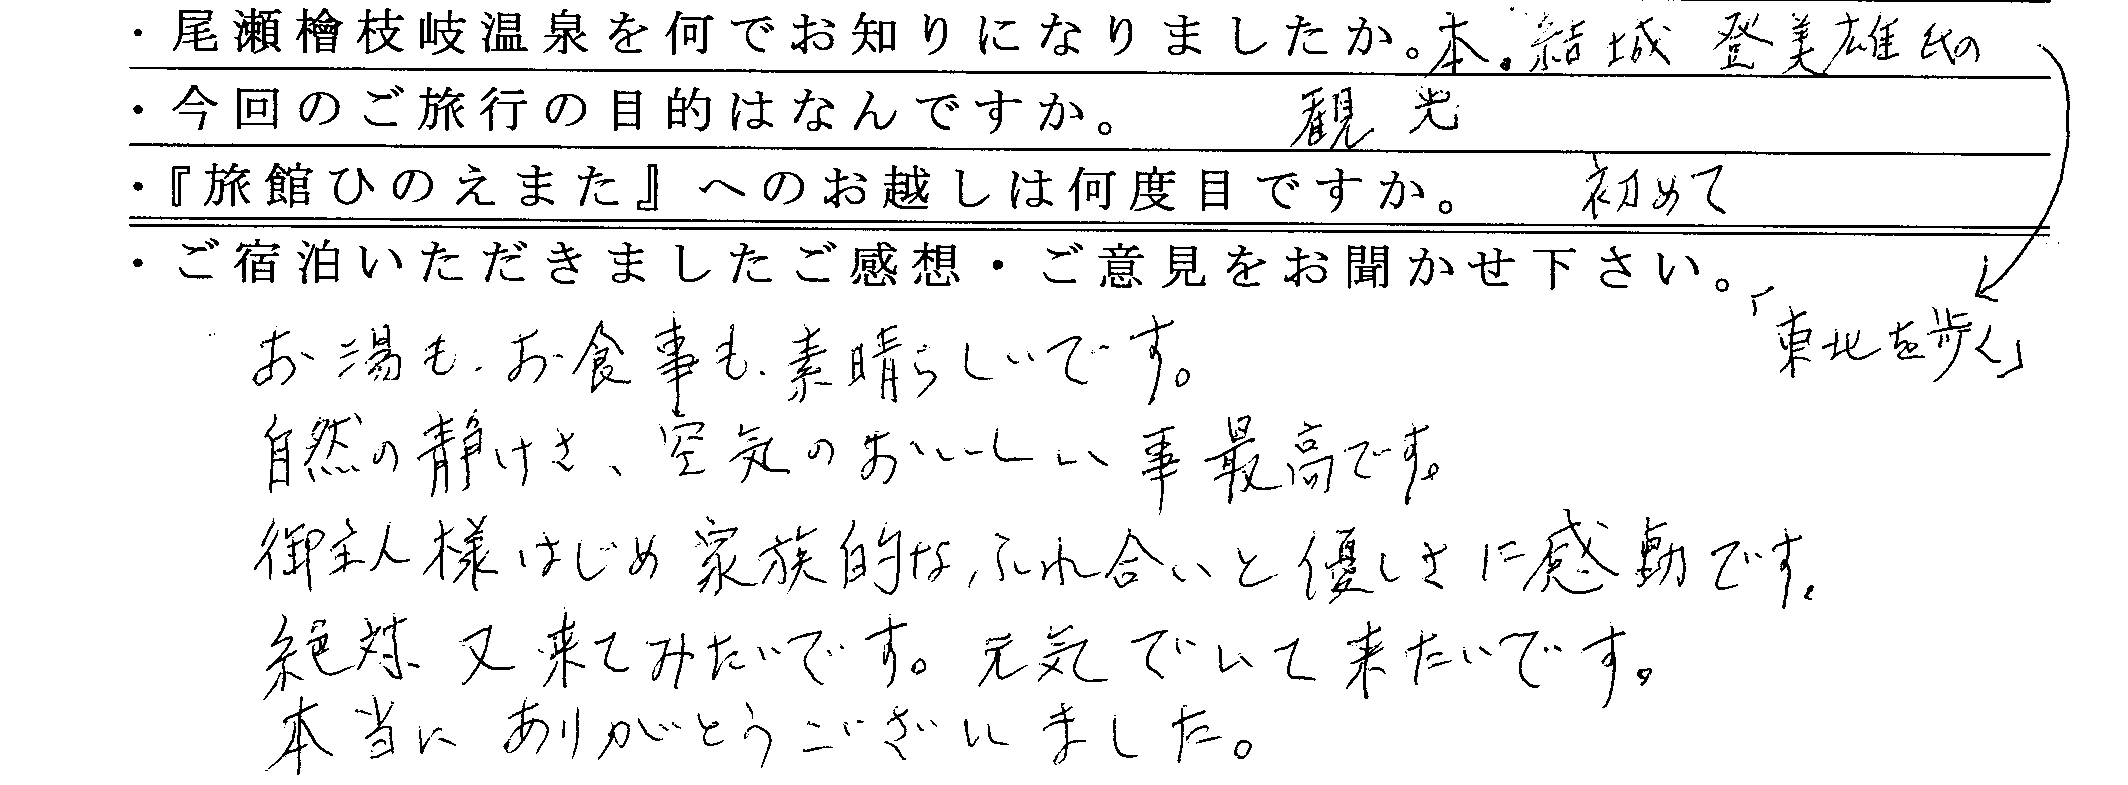 ・尾瀬檜枝岐温泉を何でお知りになりましたか。本。結城 登美雄氏の
・今回のご旅行の目的はなんですか。 観光
・『旅館ひのえまた』へのお越しは何度目ですか。 初めて
・ご宿泊いただきましたご感想・ご意見をお聞かせ下さい。
「東北を歩く」
お湯も、お食事も、素晴らしいです。
自然の静けさ、空気のおいしい事最高です。
御主人様はじめ家族的な、ふれ合いと優しさに感動です。
絶対、又来てみたいです。元気でいて来たいです。
本当にありがとうございました。